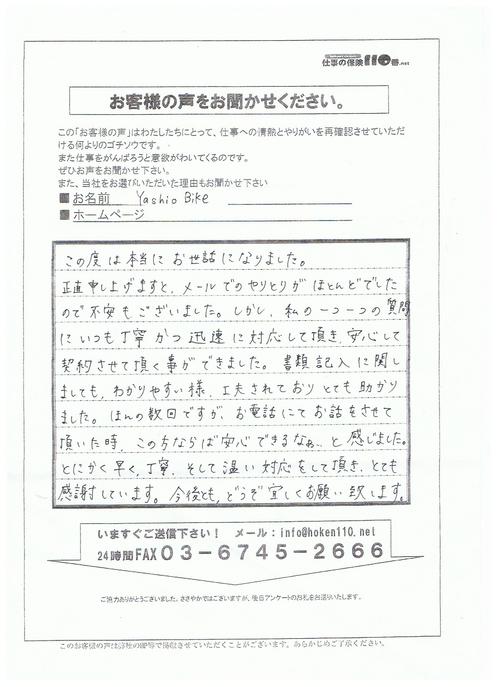 仕事の保険110番.net
お客様の声をお聞かせください。
この「お客様の声」はわたしたちにとって、仕事への情熱とやりがいを再確認させていただ
ける何よりのゴチソウです。
また仕事をがんばろうと意欲がわいてくるのです。
ぜひお声をお聞かせ下さい。
また、当社をお選びいただいた理由もお聞かせ下さい
■お名前 Yashio Bike
■ホームページ
この度は本当にお世話になりました。
正直申し上げますと、メールでのやりとりがほとんどでした
ので不安もございました。しかし、私の一つ一つの質問
にいつも丁寧かつ迅速に対応して頂き、安心して
契約させて頂く事ができました。書類記入に関し
ましても、わかりやすい様、工夫されておりとても助かり
ました。ほんの数回ですが、お電話にてお話をさせて
頂いた時、この方ならば安心できるなぁ、と感じました。
とにかく早く、丁寧、そして温い対応をして頂き、とても
感謝しています。今後とも、どうぞ宜しくお願い致します。
いますぐご送信下さい! メール：info@hoken110.net
24時間FAX03-6745-2666
ご協力ありがとうございました。ささやかではございますが、後日アンケートのお礼をお送りいたします。
このお客様の声は弊社の即等で掲載させていただくことがございます。あらかじめご了承ください。